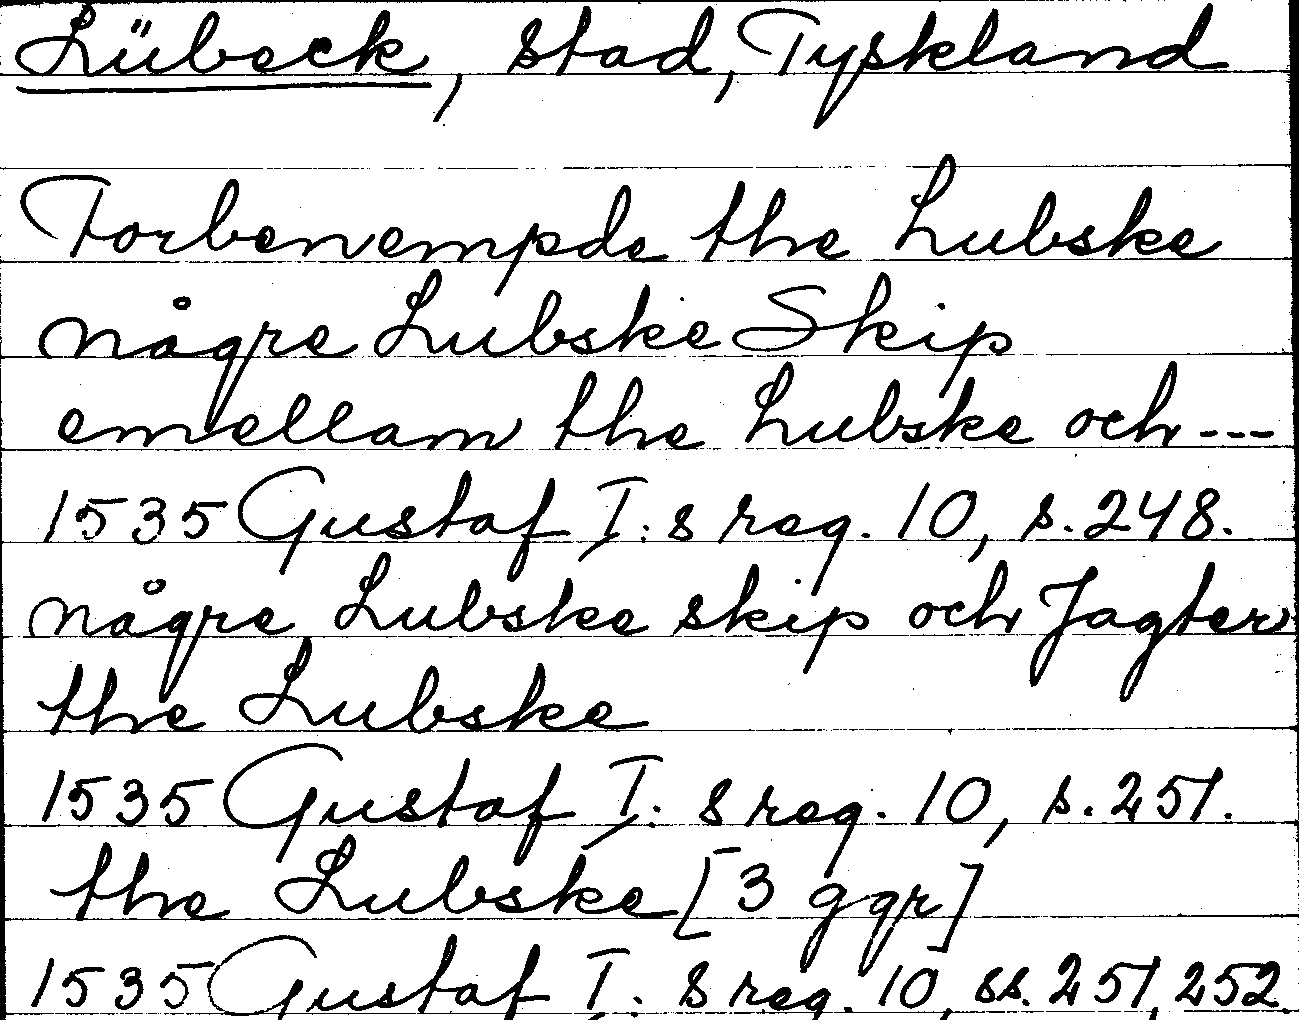 Lübeck, stad, Tyskland
Forbenempde the Lubske
någre Lubske Skip
emellam the Lubske och ---
1535 Gustaf I:s reg. 10, s. 248.
någre Lubske skip och Jagter
the Lubske
1535 Gustaf I:s reg. 10, s. 251.
the Lubske [3 ggr]
1535 Gustaf I:s reg. 10, ss. 251, 252.